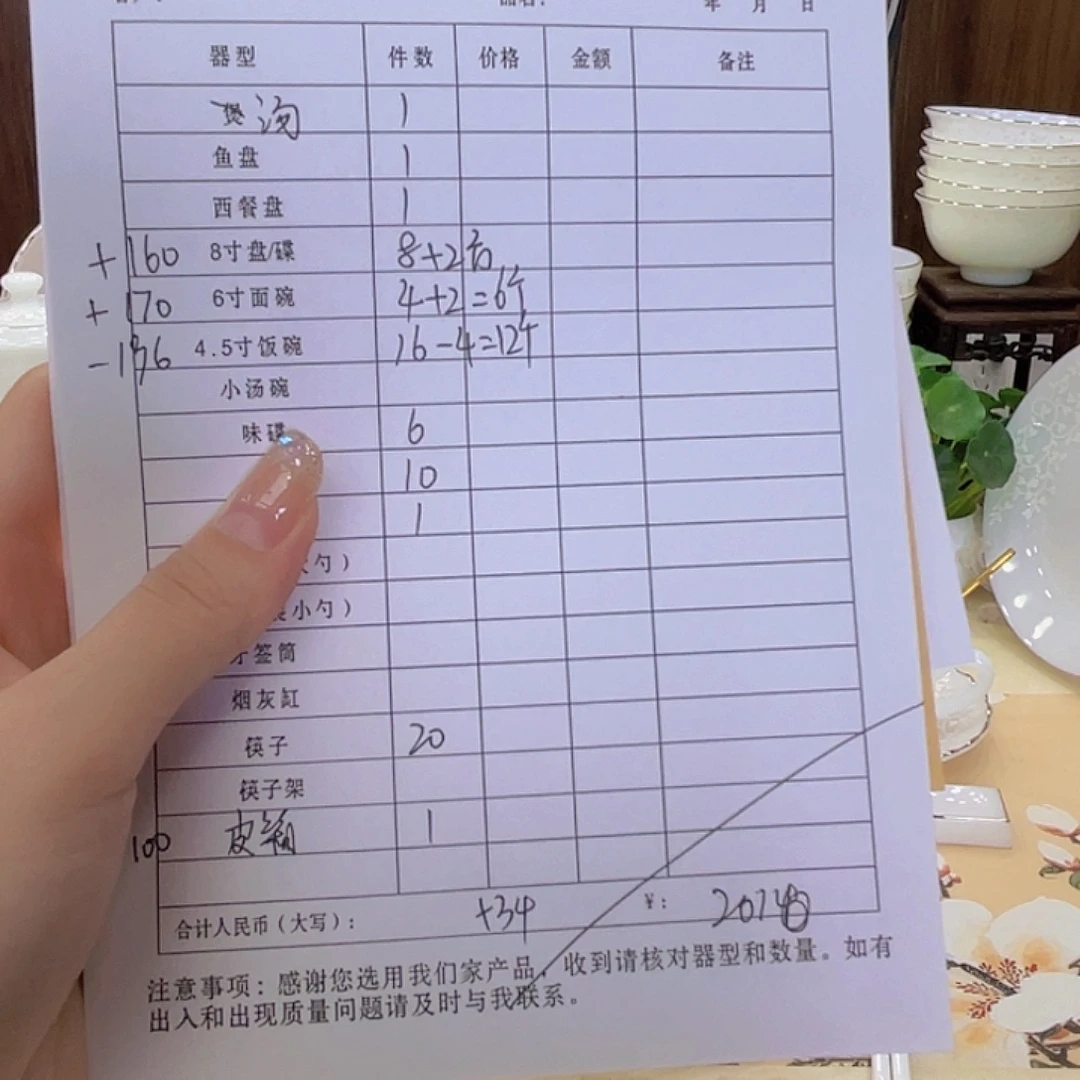 年 月 日
器型 件数 价格 金额 备注
煲 汤 1
鱼盘 1
西餐盘 1
+160 8寸盘/碟 8+2
+170 6寸面碗 4+2=6个
4.5寸饭碗 16-4=12个
小汤碗
味碟 6
10
1
勺）
小勺）
签筒
烟灰缸
筷子 20
筷子架
100 皮箱 1
合计人民币（大写）： +34 ¥：
注意事项：感谢您选用我们家产品，收到请核对器型和数量。如有
出入和出现质量问题请及时与我联系。